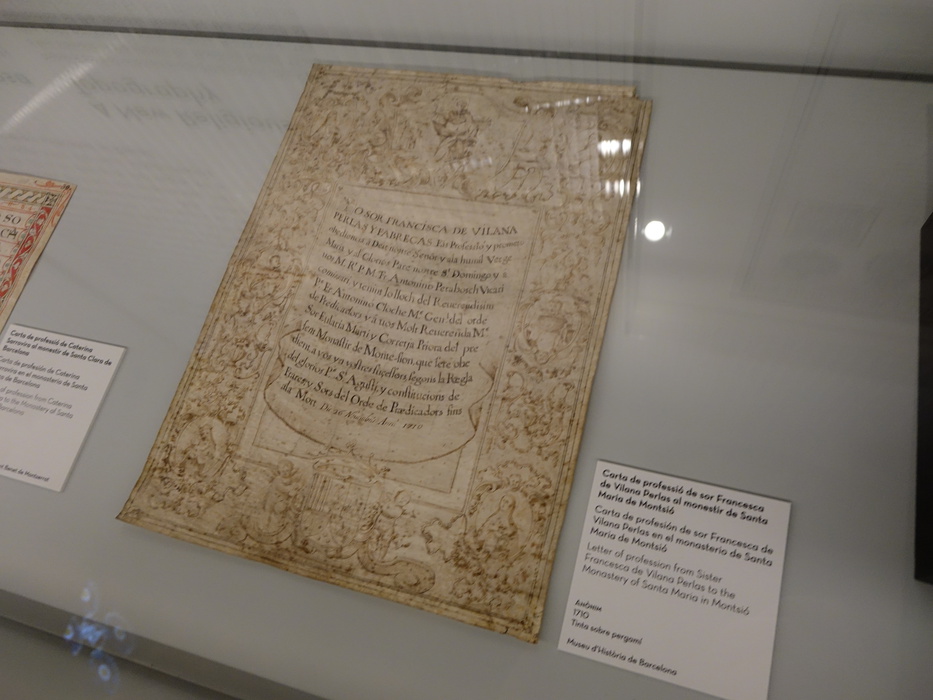 O SOR FRANCISCA DE VILANA
PERLAS Y FABREGAS. Fas Professió y promet
obediencia a Deu nostre Senor y a la humil Verge
Maria y al Glorios Pare nostre St. Domingo y a
vos M. Rt. P. M. Fr. Antonino Perabosch Vicari
y tenint lo lloch del Reverendissim
Pe. Fr. Antonino Cloche Me. Genl. del orde
de Predicadors y a vos Molt Reverenda Me.
Sor Eularia Marti y Correrja Priora del pre
sent Monastir de Monte-sion, que seré obe
dient a vos y a vostres successors segons la Regla
del glorios Pe. St. Agusti, y constitucions de
Frares y Sors del Orde de Prædicadors fins
a la Mort. 1710
SO
CA
Carta de professió de Caterina
Sarrovira al monestir de Santa Clara de
Barcelona
Carta de profesión de Caterina
Sarrovira en el monasterio de Santa
Clara de Barcelona
of profession from Caterina
to the Monastery of Santa
Barcelona
de Montserrat
Carta de professió de sor Francesca
de Vilana Perlas al monestir de Santa
Maria de Montsió
Carta de profesión de sor Francesca de
Vilana Perlas en el monasterio de Santa
Maria de Montsió
Letter of profession from Sister
Francesca de Vilana Perlas to the
Monastery of Santa Maria in Montsió
Anònim
1710
Tinta sobre pergamí
Museu d'Història de Barcelona